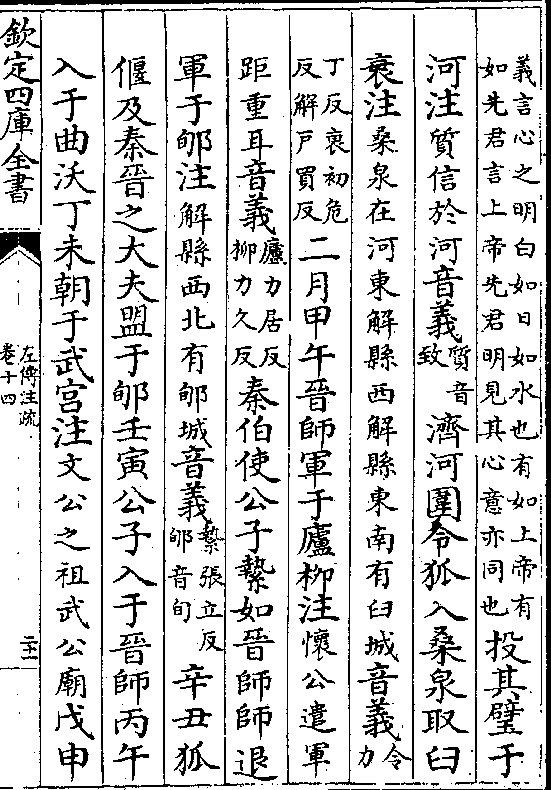 義言心之明白如日如水也有如上帝有
如先君言上帝先君明見其心意亦同也投其璧于
河注質信於河音義質音致濟河圍令狐入桑泉取臼
衰注桑泉在河東解縣西解縣東南有臼城音義令力
丁反衰初危
反解戸買反二月甲午晉師軍于廬柳注懷公遣軍
距重耳音義廬力居反柳力久反秦伯使公子縶如晉師師退
軍于郇注解縣西北有郇城音義縶張立反郇音旬辛丑狐
偃及秦晉之大夫盟于郇壬寅公子入于晉師丙午
入于曲沃丁未朝于武宫注文公之祖武公廟戊申
欽定四庫全書
左傳注疏
卷十四
二十一